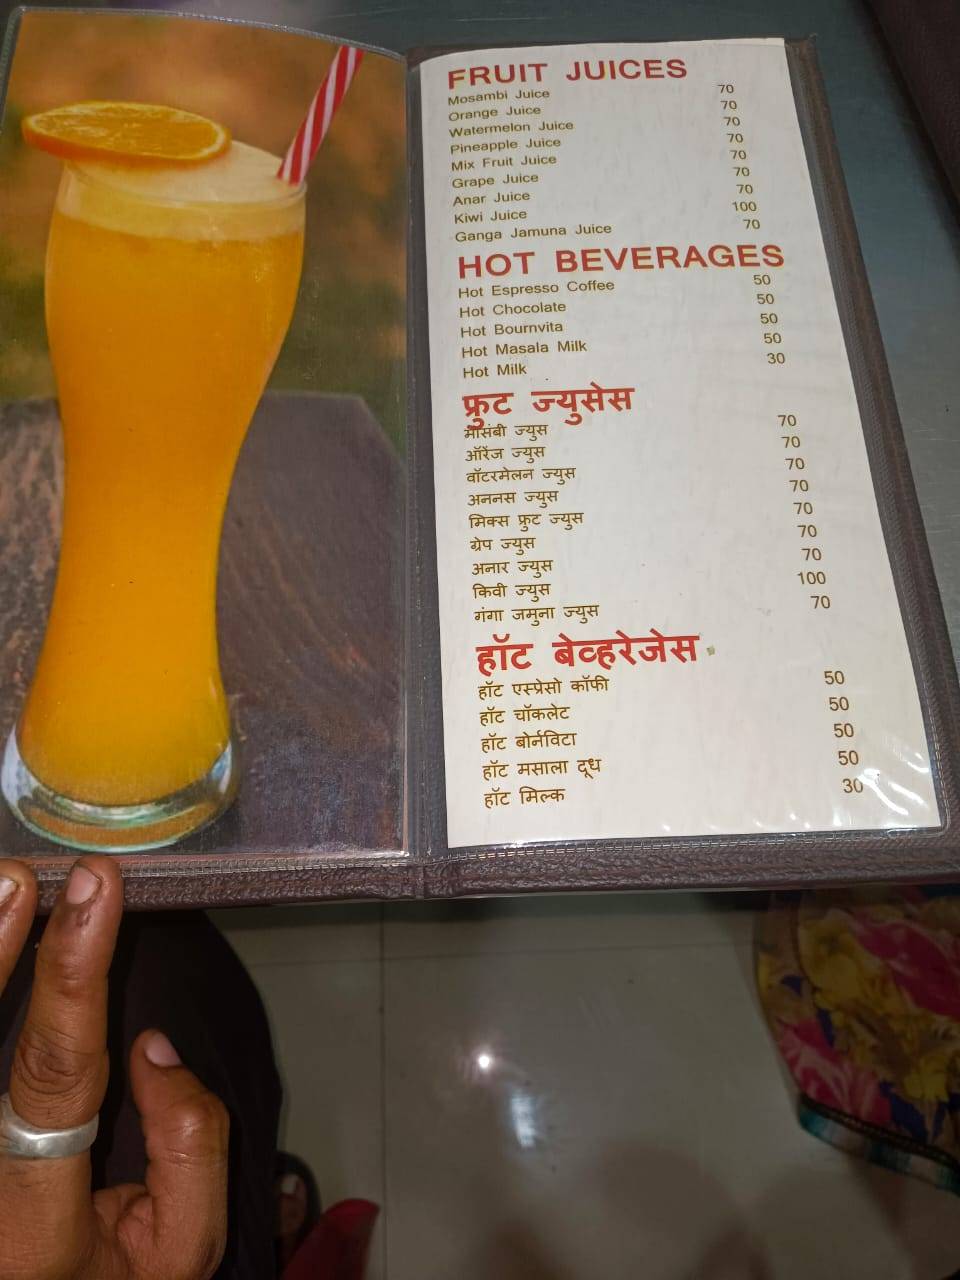 FRUIT JUICES
Mosambi Juice 70
Orange Juice 70
Watermelon Juice 70
Pineapple Juice 70
Mix Fruit Juice 70
Grape Juice 70
Anar Juice 70
Kiwi Juice 100
Ganga Jamuna Juice 70
HOT BEVERAGES
Hot Espresso Coffee 50
Hot Chocolate 50
Hot Bournvita 50
Hot Masala Milk 50
Hot Milk 30
फ्रुट ज्युसेस
मोसंबी ज्युस 70
ऑरेंज ज्युस 70
वॉटरमेलन ज्युस 70
अननस ज्युस 70
मिक्स फ्रुट ज्युस 70
ग्रेप ज्युस 70
अनार ज्युस 70
किवी ज्युस 100
गंगा जमुना ज्युस 70
हॉट बेव्हरेजेस
हॉट एस्प्रेसो कॉफी 50
हॉट चॉकलेट 50
हॉट बोर्नविटा 50
हॉट मसाला दूध 50
हॉट मिल्क 30